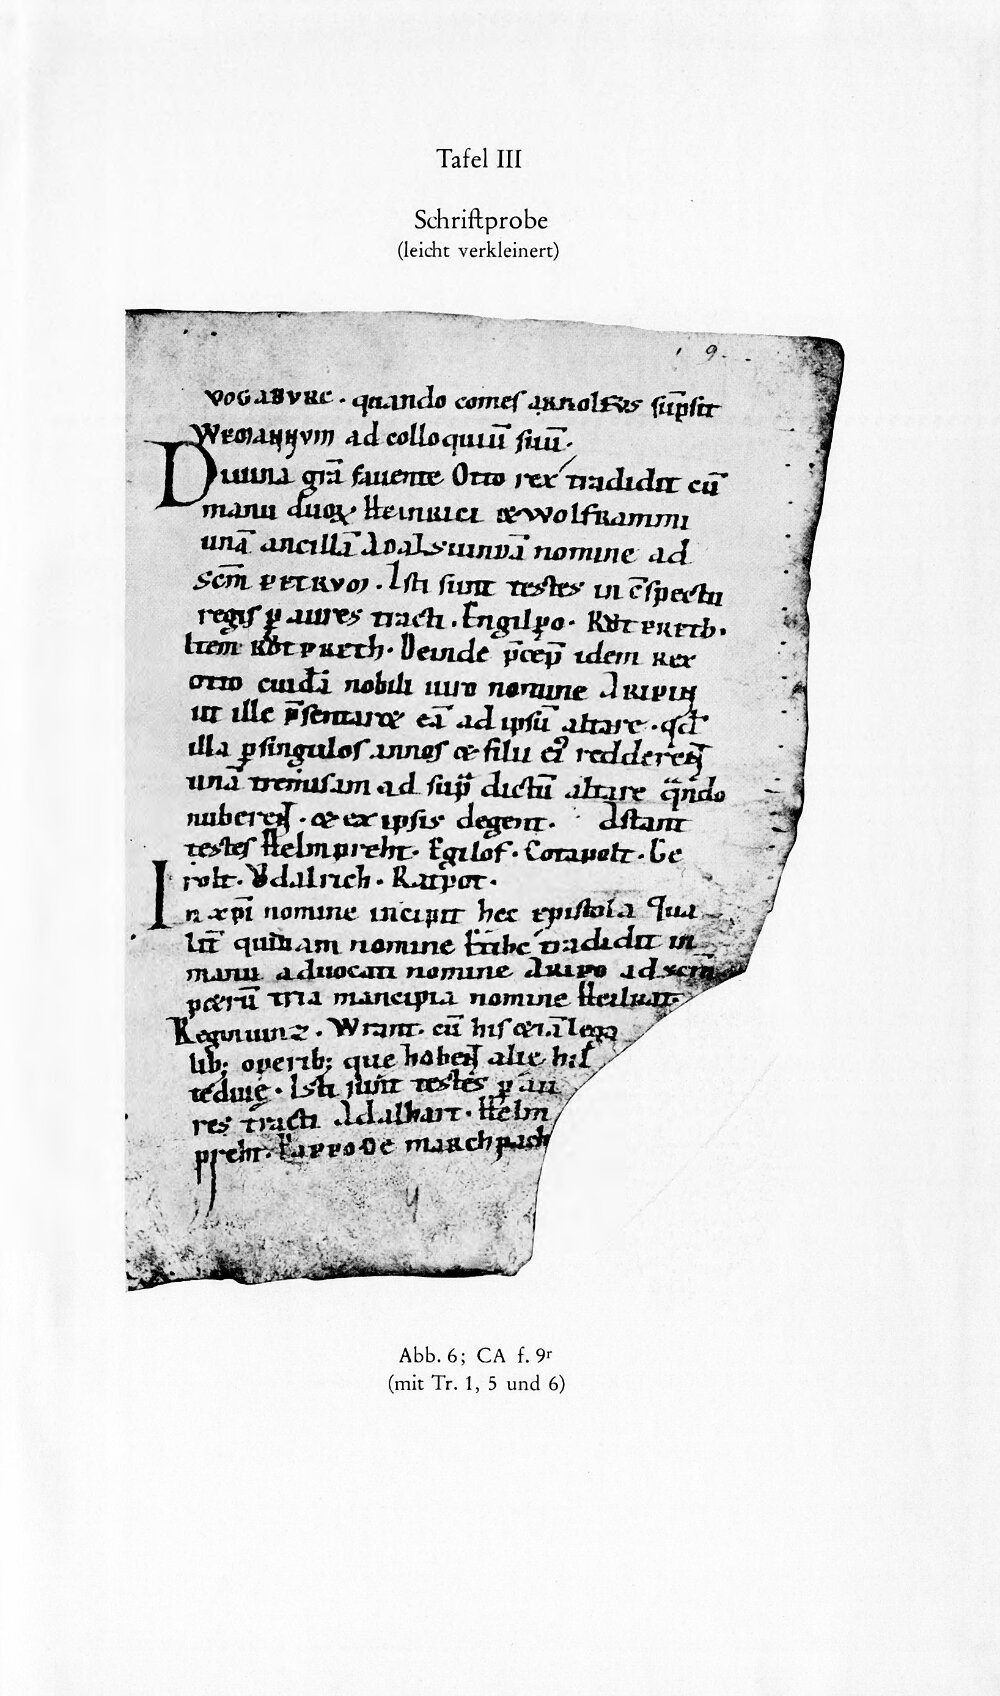 Tafel III
Schriftprobe
(leicht verkleinert)
9
VOGABVRC · quando comes ARNOLFVS sūpsit
ad colloquiū suū·
Diuina grā fauente Otto rex tradidit cū
manu duoꝝ Heinrici & Wolframmi
unā ancillā nomine ad
Scm̄ PETRVM · Isti sunt testes in c̄spectu
regis ꝑ aures tracti · Engilpo ·
Item · Deinde p̄cep̄ idem rex
otto cuidā nobili uiro nomine ARIPIN
ut ille p̄sentaret eā ad ipsū altare · qd̄
illa ꝑ singulos annos & filii ei⁹ redderent
unā tremisam ad sup̄ dictū altare
nuberent · & ex ipsis degent · dstant
testes Helmpreht · Egilof · Cotapolt · Ge
rolt · Vdalrich · Ratpot ·
In xp̄i nomine incipit hec epistola Qua
lit̄ quidam nomine tradidit in
manu aduocati nomine ARIPO ad scm̄
petrū tria mancipia nomine Heilrat ·
· Wrant · cū his lega
lib; operib; que habent alie his
· Isti sunt testes ꝑ au
res tracti Adalhart · Helm
preht · PAPPO DE marchpach
Abb. 6; CA f. 9r
(mit Tr. 1, 5 und 6)